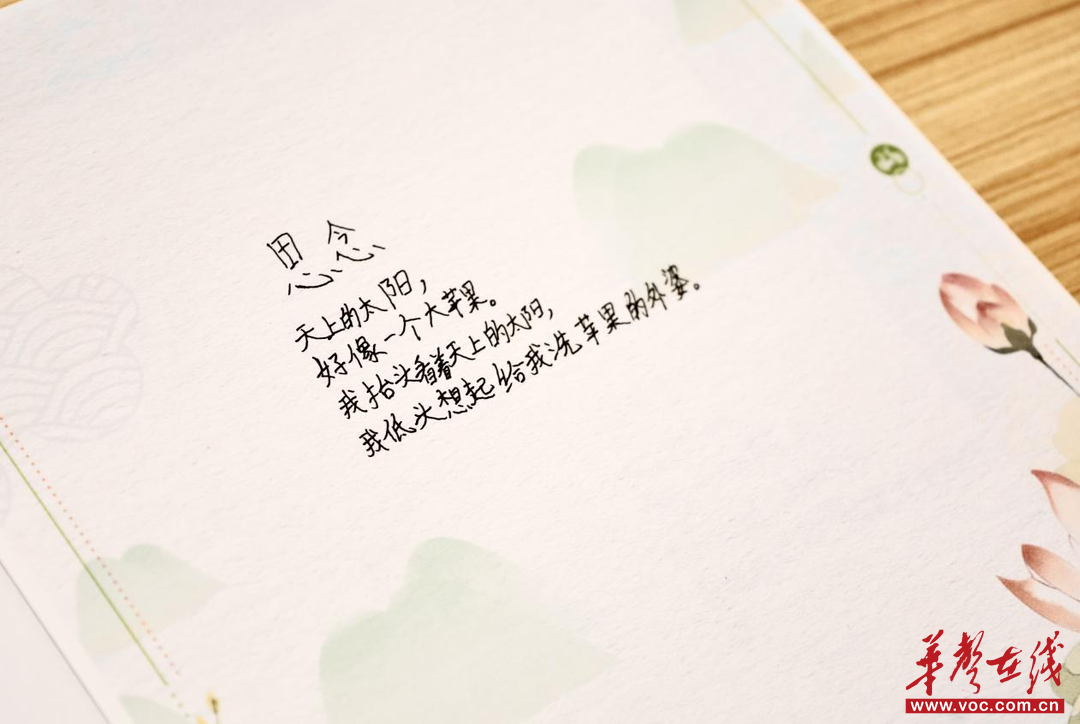 思念
天上的太阳，
好像一个大苹果。
我抬头看着天上的太阳，
我低头想起给我洗苹果的外婆。
華聲在线
www.voc.com.cn